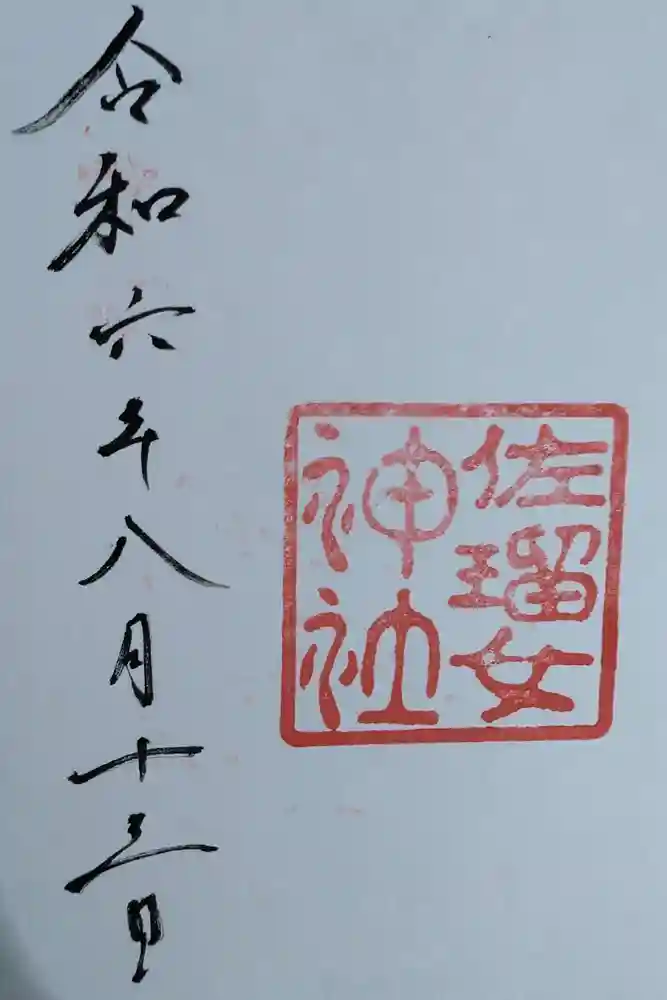 佐瑠女
神社
令和六年八月十三日